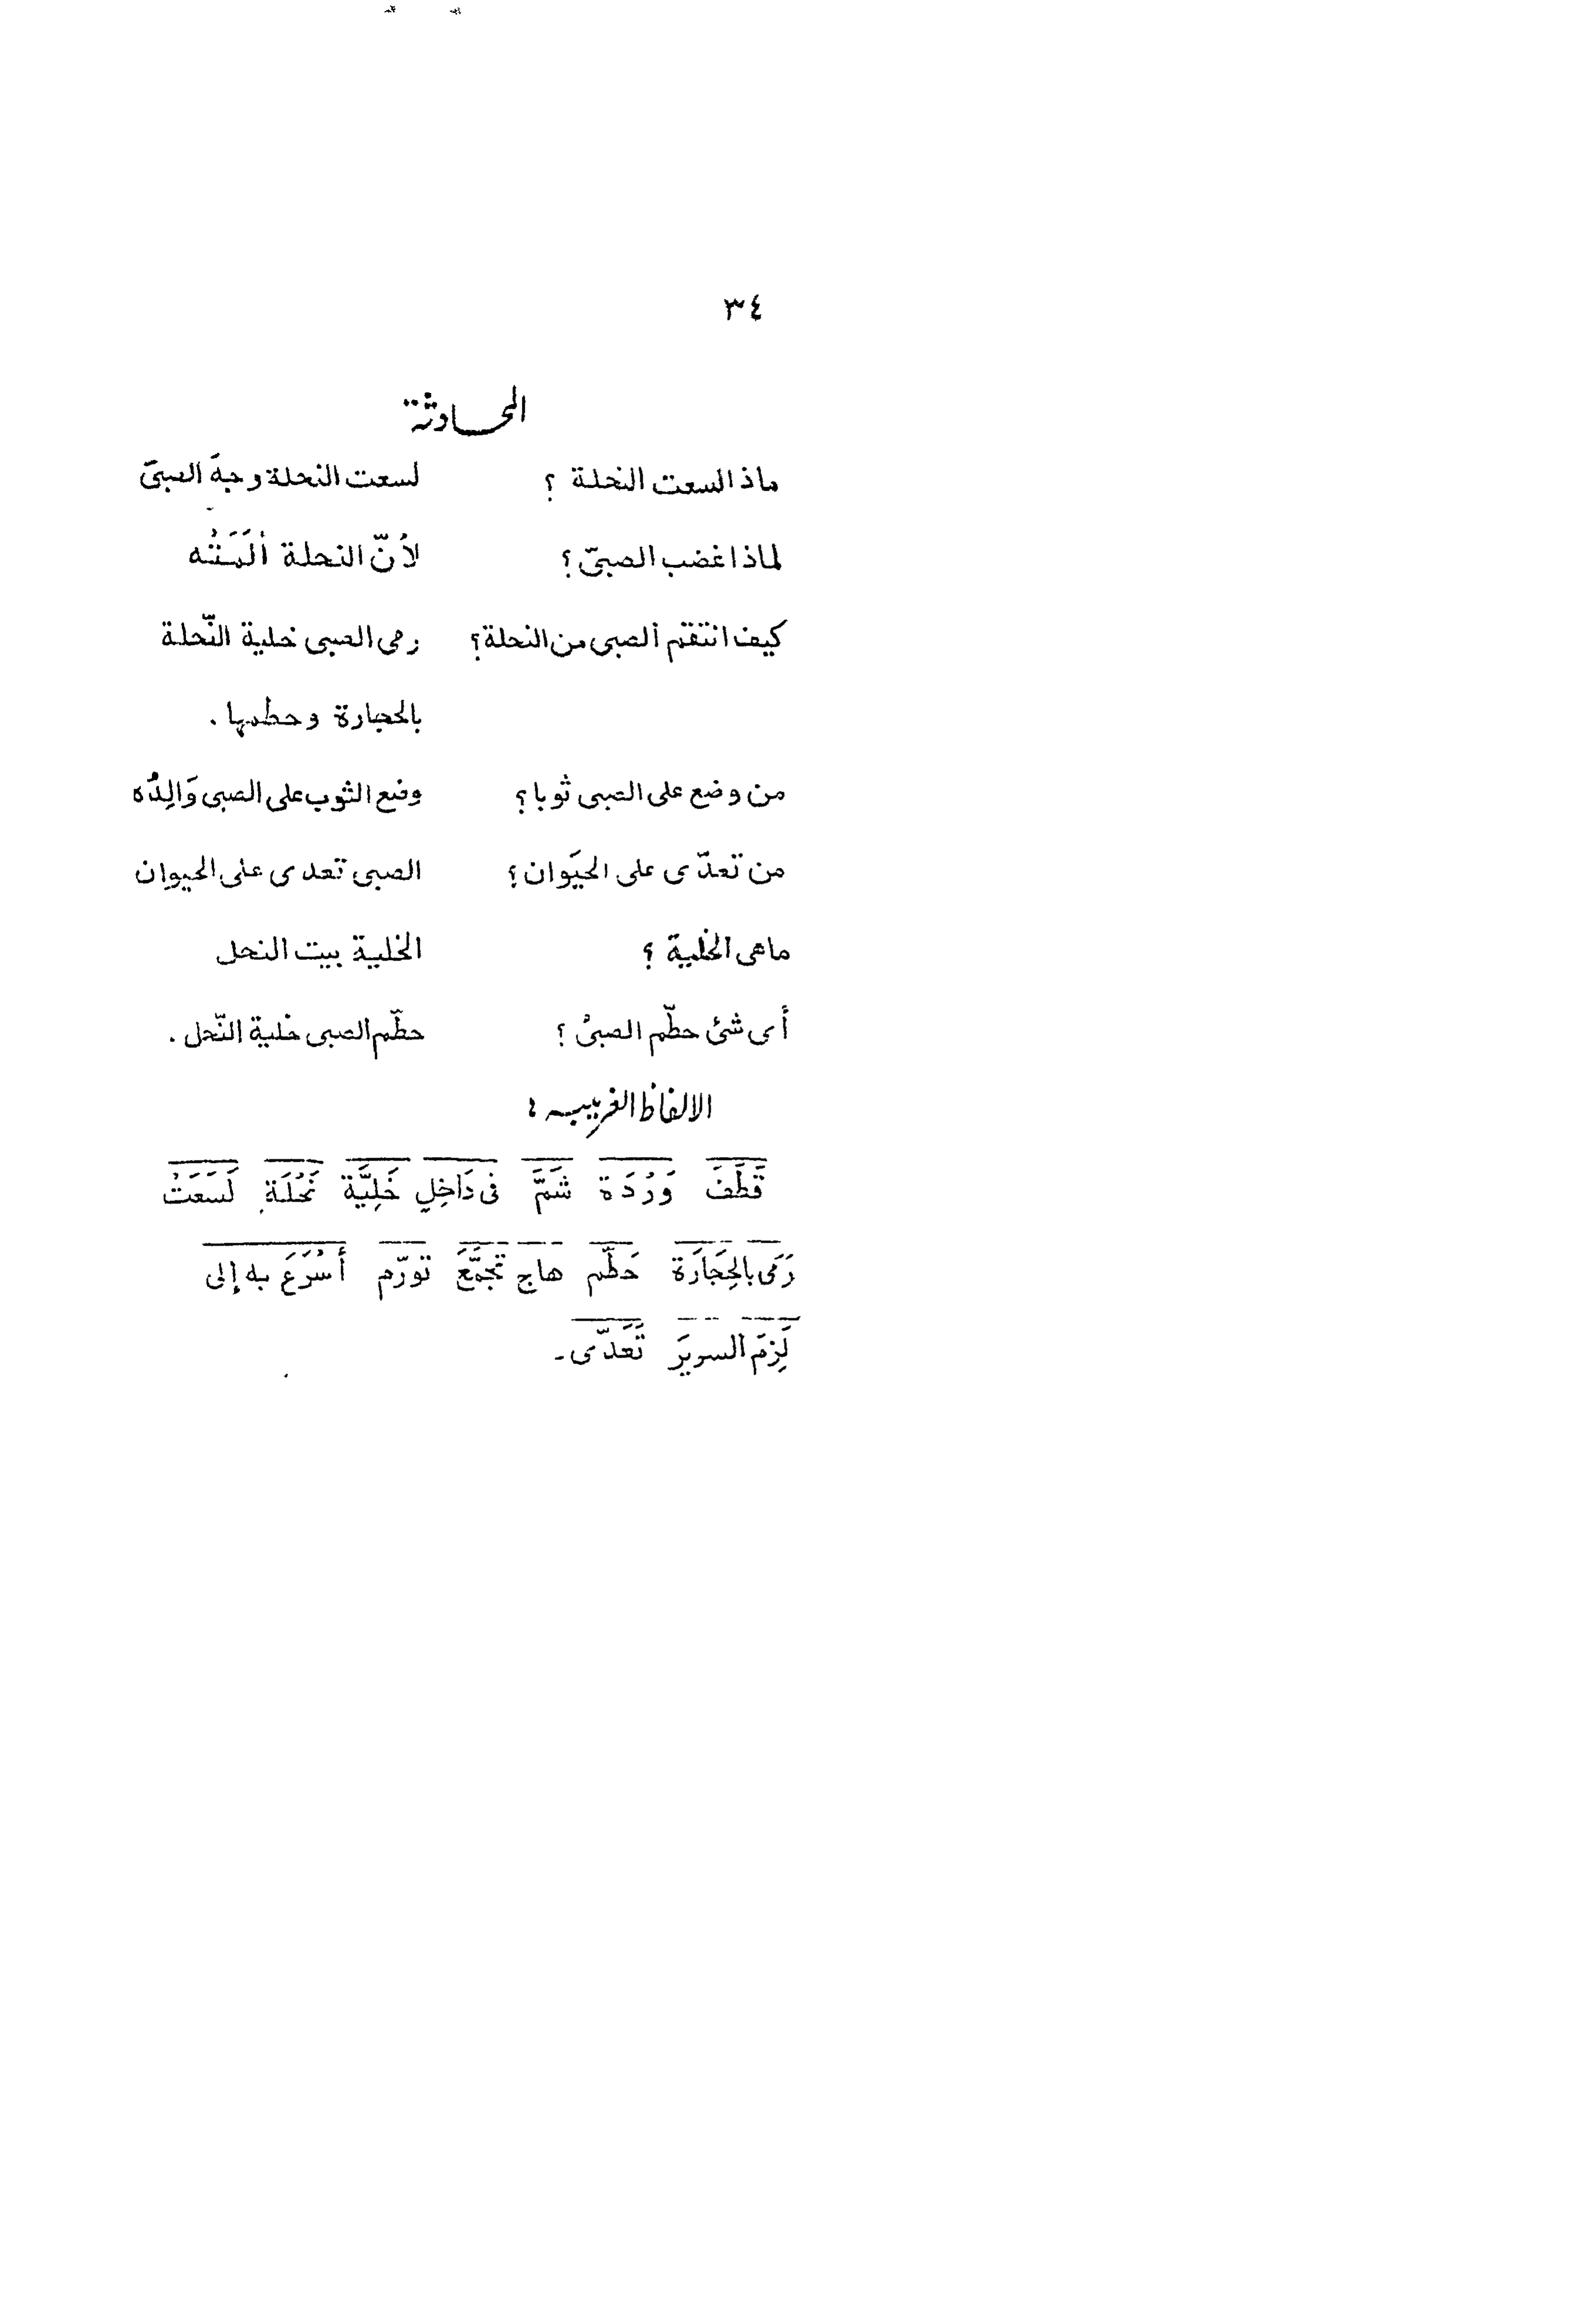 ٣٤
المحادثة
ماذا لسعت النحلة ؟ لسعت النحلة وجهَ الصبىّ
لماذا غضب الصبىّ ؟ لأنّ النحلة ألَمَتْه
كيف انتقم الصبى من النحلة ؟ رمى الصبى خلية النّحلة
بالحجارة وحطمها .
من وضع على الصبى ثوبا ؟ وضع الثوب على الصبى وَالِدُه
من تعدّى على الحيَوان ؟ الصبى تعدى على الحيوان
ماهى الخلية ؟ الخلية بيت النحل
أى شئ حطّم الصبىُ ؟ حطّم الصبى خلية النّحل .
الالفاظ الغريبه :
قَطَفَ وَرْدَة شَمَّ فى دَاخِلِ خَلِيَّة نَحْلَة لَسَعَتْ
رَمَى بالحِجَارَة حَطّم هاج تجمَّعَ تورّم أسْرَعَ به إلى
لَزِمَ السريرَ تَعَدّى -